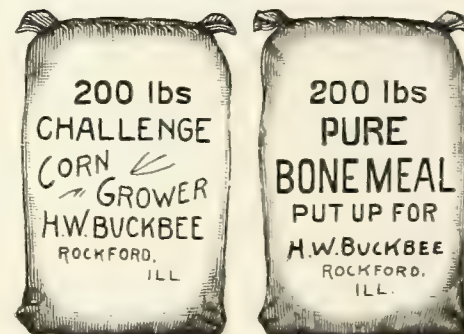 200 lbs
CHALLENGE
CORN
GROWER
H.W.BUCKBEE
ROCKFORD,
ILL
200 lbs
PURE
BONEMEAL
PUT UP FOR
H.W.BUCKBEE
ROCKFORD.
ILL.